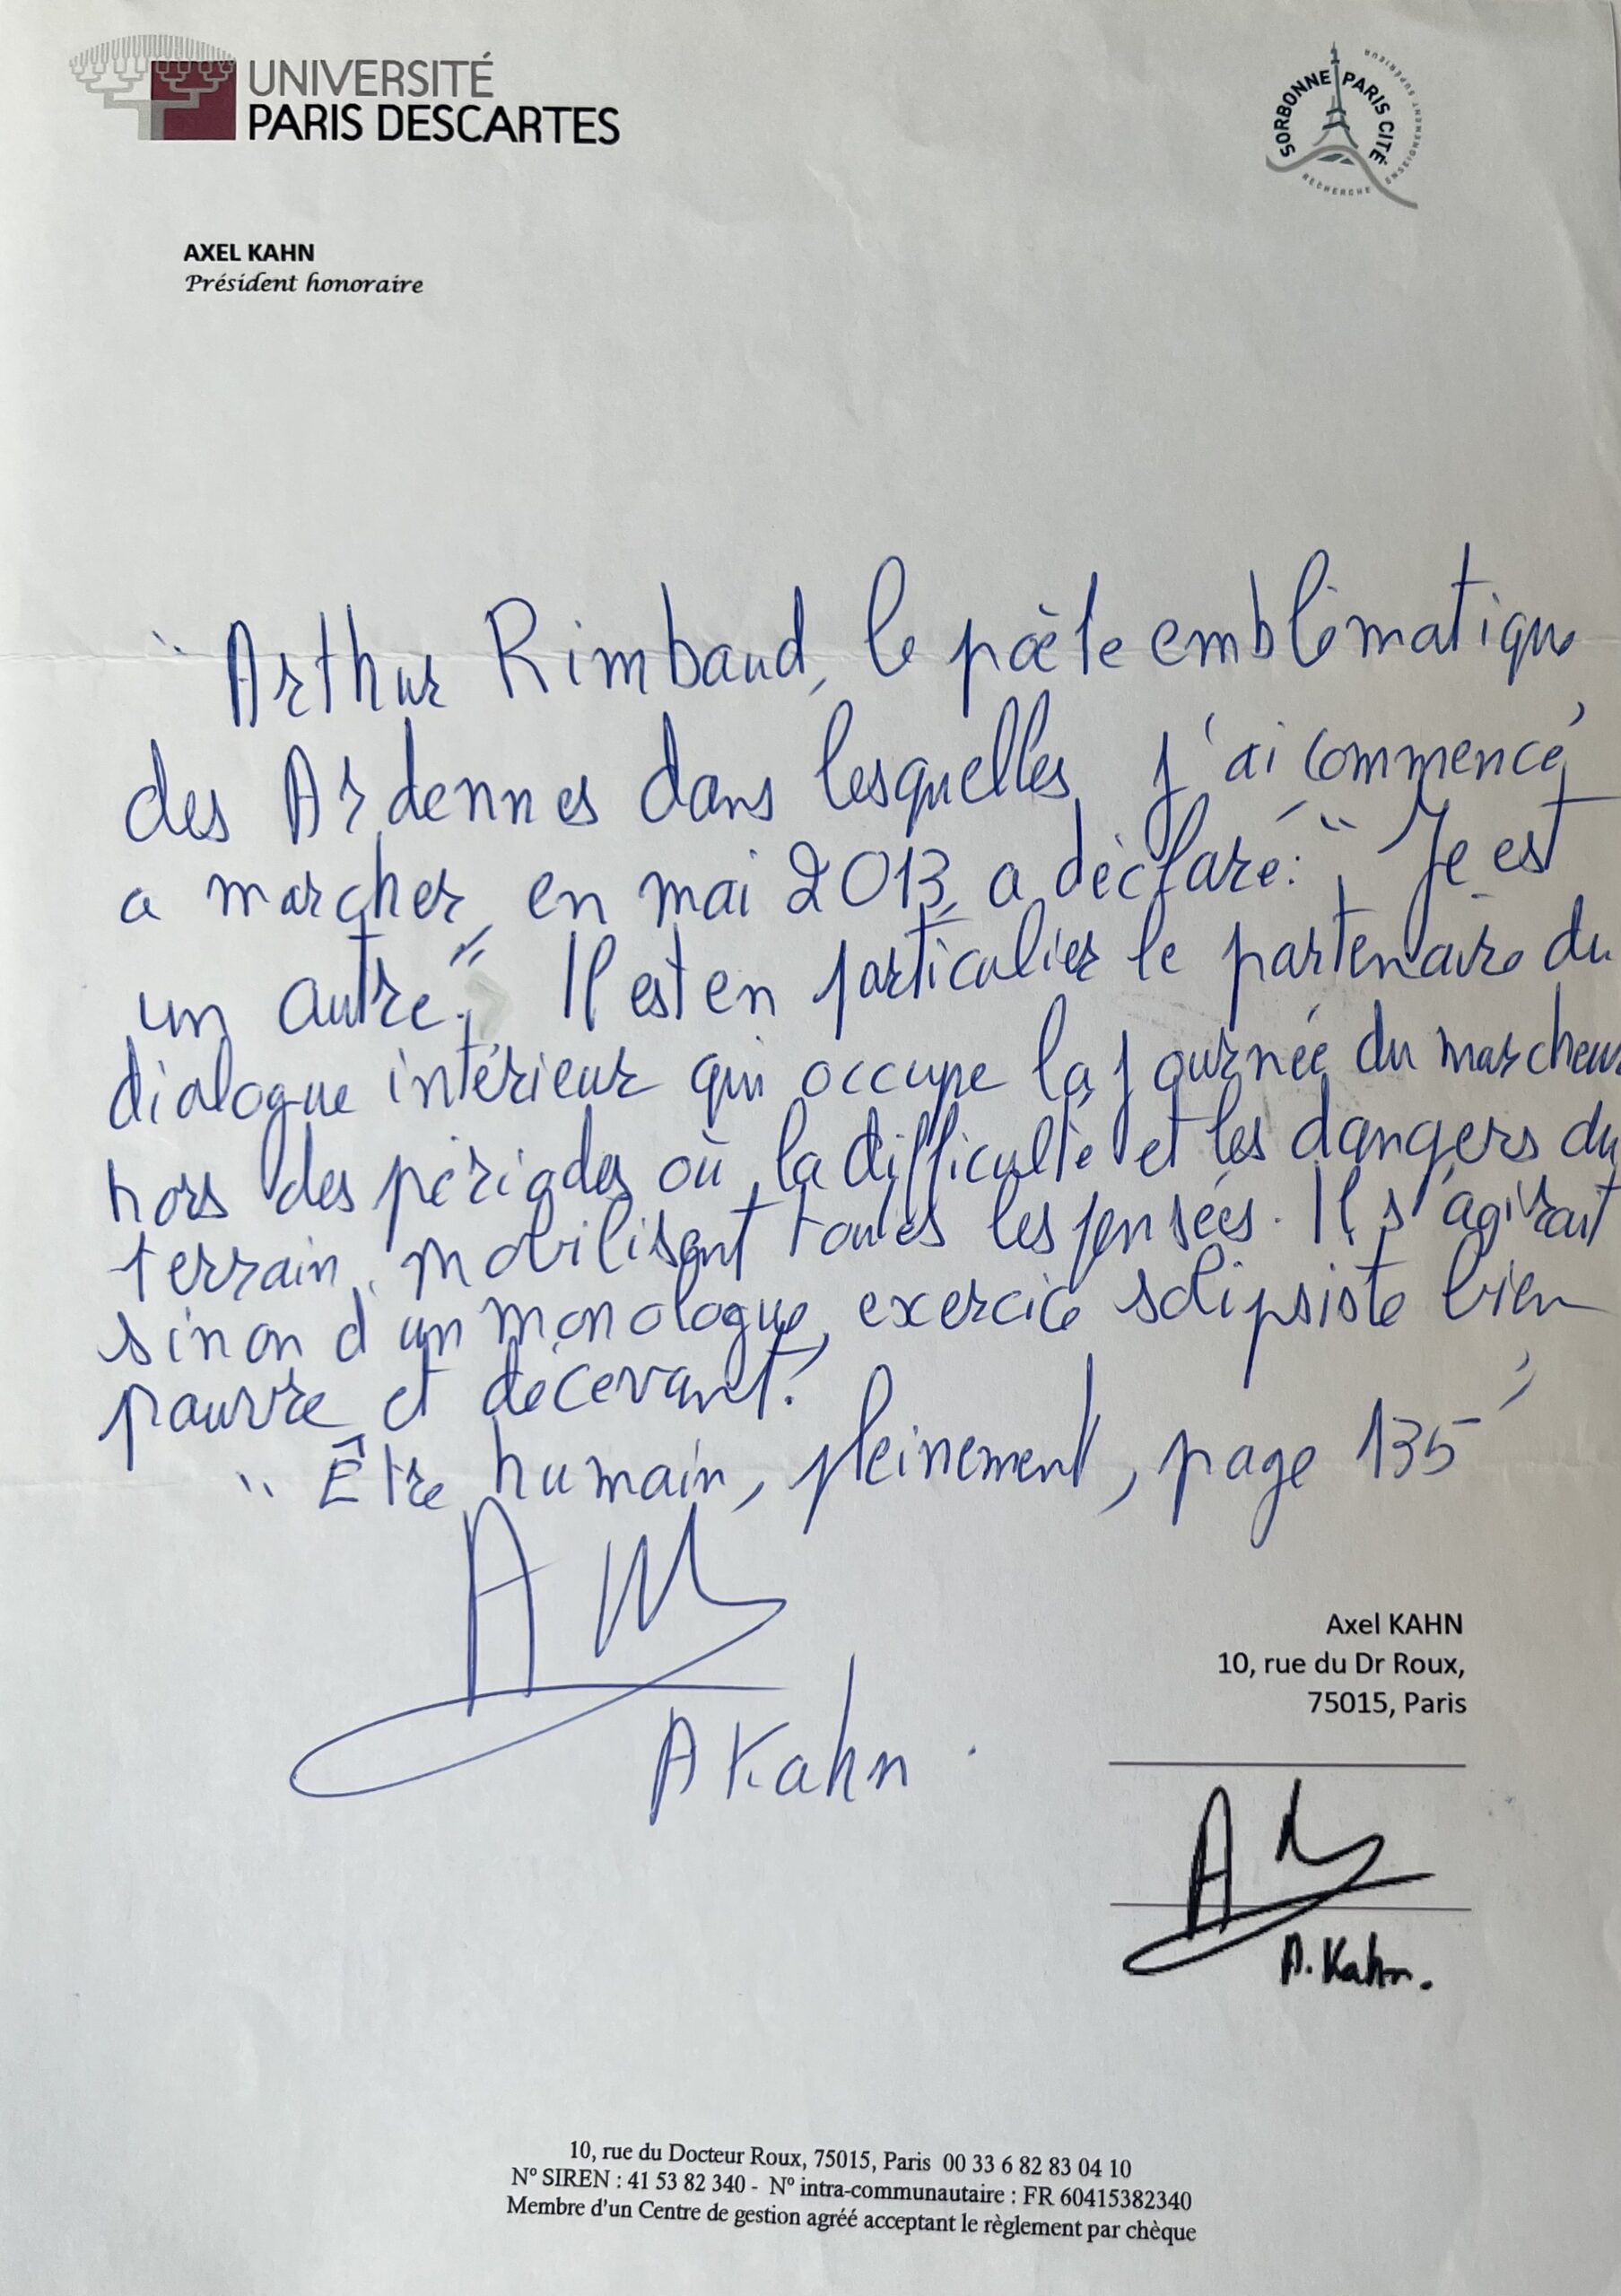 UNIVERSITÉ
PARIS DESCARTES
SORBONNE PARIS CITÉ
RECHERCHE ENSEIGNEMENT SUPÉRIEUR
AXEL KAHN
Président honoraire
" Arthur Rimbaud, le poète emblématique
des Ardennes dans lesquelles j'ai commencé
a marcher en mai 2013, a déclaré: " Je est
un autre". Il est en particulier le partenaire du
dialogue intérieur qui occupe la journée du marcheur
hors des périodes où la difficulté et les dangers du
terrain mobilisent toutes les pensées. Il s'agirait
sinon d'un monologue, exercice solipsiste bien
pauvre et décevant.
" Être humain, pleinement, page 135 "
A Kahn.
Axel KAHN
10, rue du Dr Roux,
75015, Paris
A. Kahn.
10, rue du Docteur Roux, 75015, Paris 00 33 6 82 83 04 10
N° SIREN : 41 53 82 340 - N° intra-communautaire : FR 60415382340
Membre d'un Centre de gestion agréé acceptant le règlement par chèque